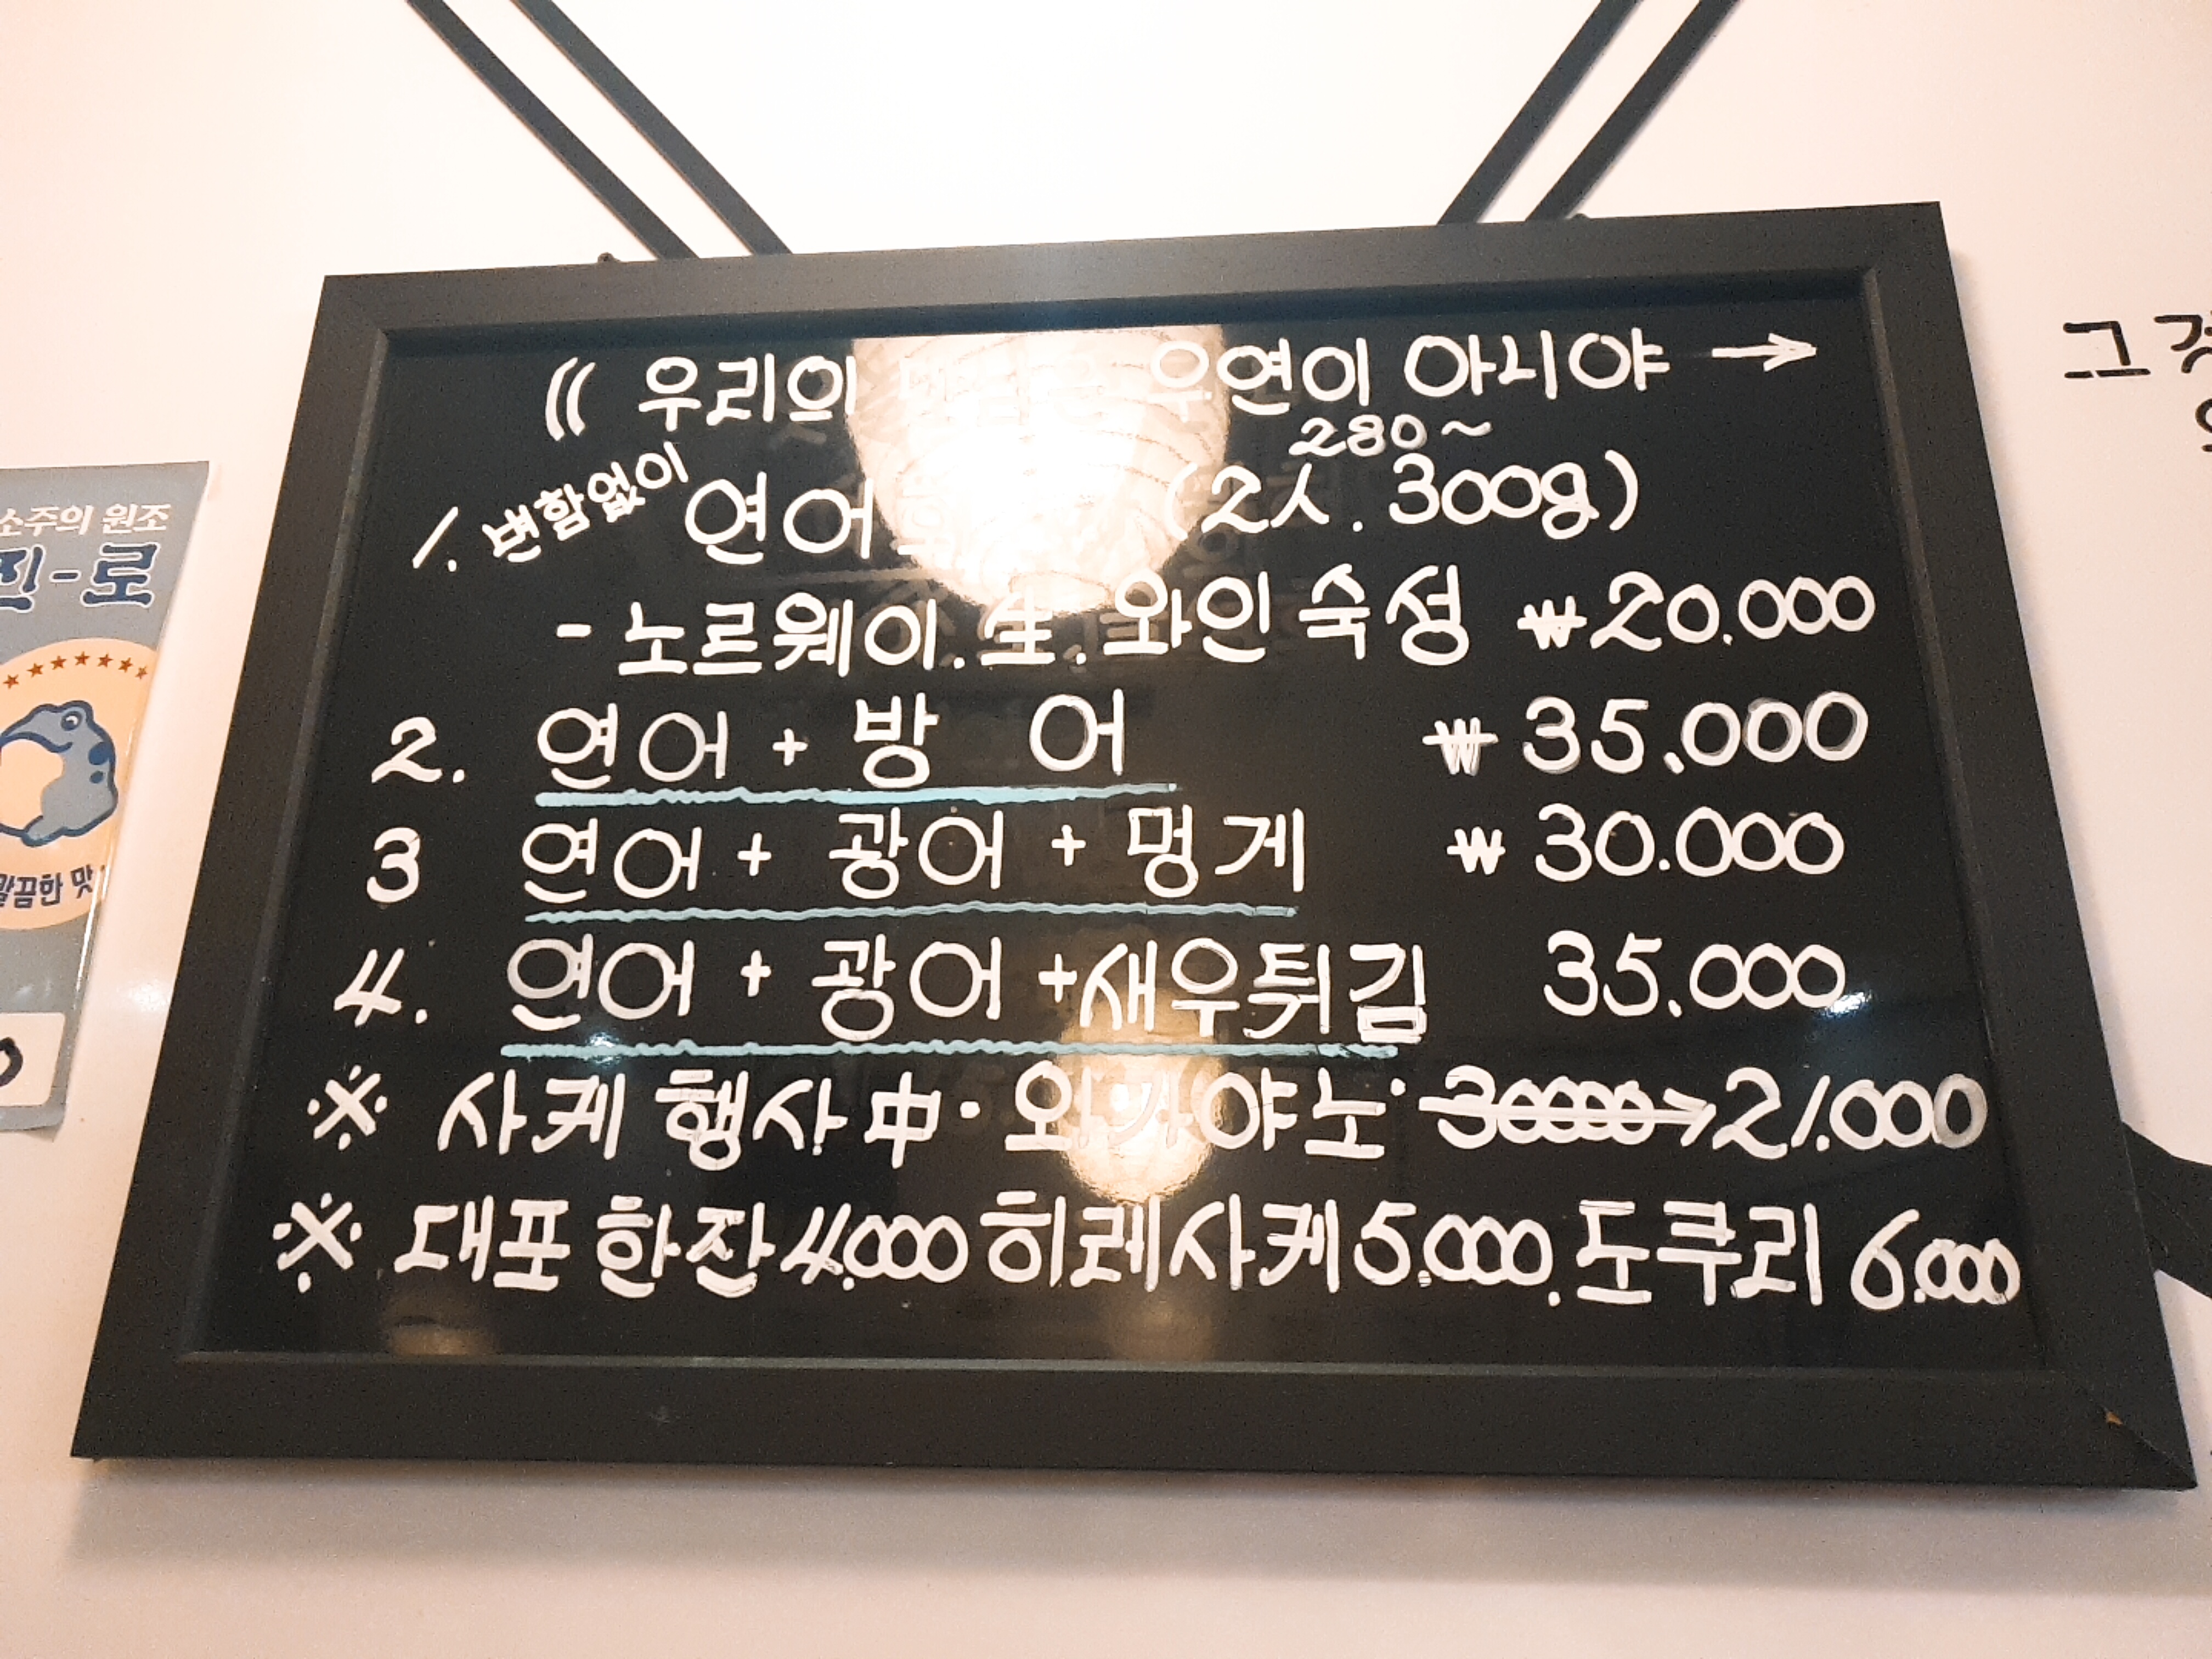 (( 우리의 만남은 우연이 아니야 →
280~
1. 변함없이 연어 (2人. 300g)
- 노르웨이. 生. 와인숙성 ₩20.000
2. 연어 + 방 어 ₩ 35.000
3 연어 + 광어 + 멍게 ₩ 30.000
4. 연어 + 광어 +새우튀김 35.000
※ 사케 행사中. 오카야노 30000→21.000
※ 대포 한잔 4.000 히레사케 5.000. 도쿠리 6.000
소주의 원조
진-로
깔끔한 맛